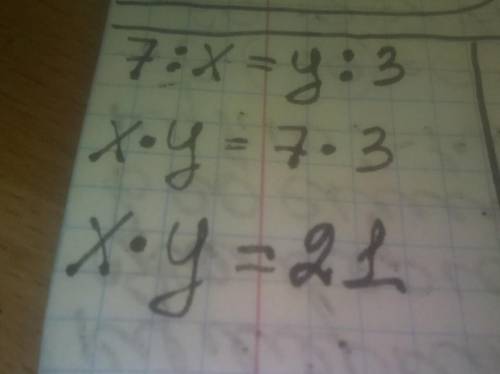 7:x=y:3
x·y=7·3
x·y=21